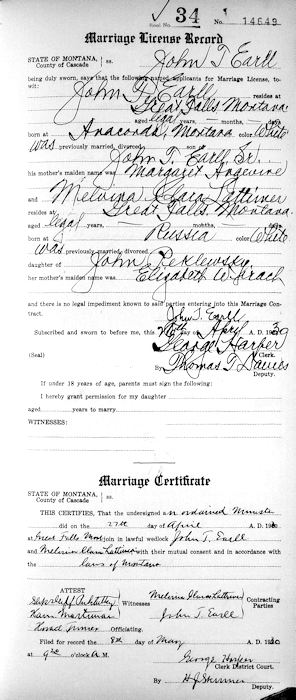 34 No. 14649
Marriage License Record
STATE OF MONTANA,
County of Cascade ss. John T Earll
being duly sworn, says that the following named applicants for Marriage License, to-
wit: John T Earll
resides at Great Falls Montana
aged legal years,—months,—days
born at Anaconda, Montana color White
was previously married, divorced son of
John T. Earll, Sr.
his mother's maiden name was Margaret Angevine
and Melvina Clara Lattimer
resides at Great Falls, Montana.
aged legal years,—months,—days.
born at Russia color White
was previously married, divorced
daughter of John Reklewsky
her mother's maiden name was Elizabeth
and there is no legal impediment known to said parties entering into this Marriage Con-
tract. John T. Earll
Subscribed and sworn to before me, this day of April A. D. 19
George Harper
(Seal) Clerk.
By Thomas F Davies
Deputy.
If under 18 years of age, parents must sign the following:
I hereby grant permission for my daughter
aged years to marry
WITNESSES:
Marriage Certificate
STATE OF MONTANA,
County of Cascade ss.
THIS CERTIFIES, That the undersigned an ordained Minister
did on the 27th day of April A. D. 19
at Great Falls Mont join in lawful wedlock John T. Earll
and Melvina Clara Lattimer with their mutual consent and in accordance with the
laws of Montana
ATTEST
Witnesses
Melvina Clara Lattimer
John T. Earll
Contracting Parties
Officiating
Filed for record the 8th day of May A. D. 19
at 9 o'clock A M.
George Harper
Clerk District Court.
By H J Skinner
Deputy.